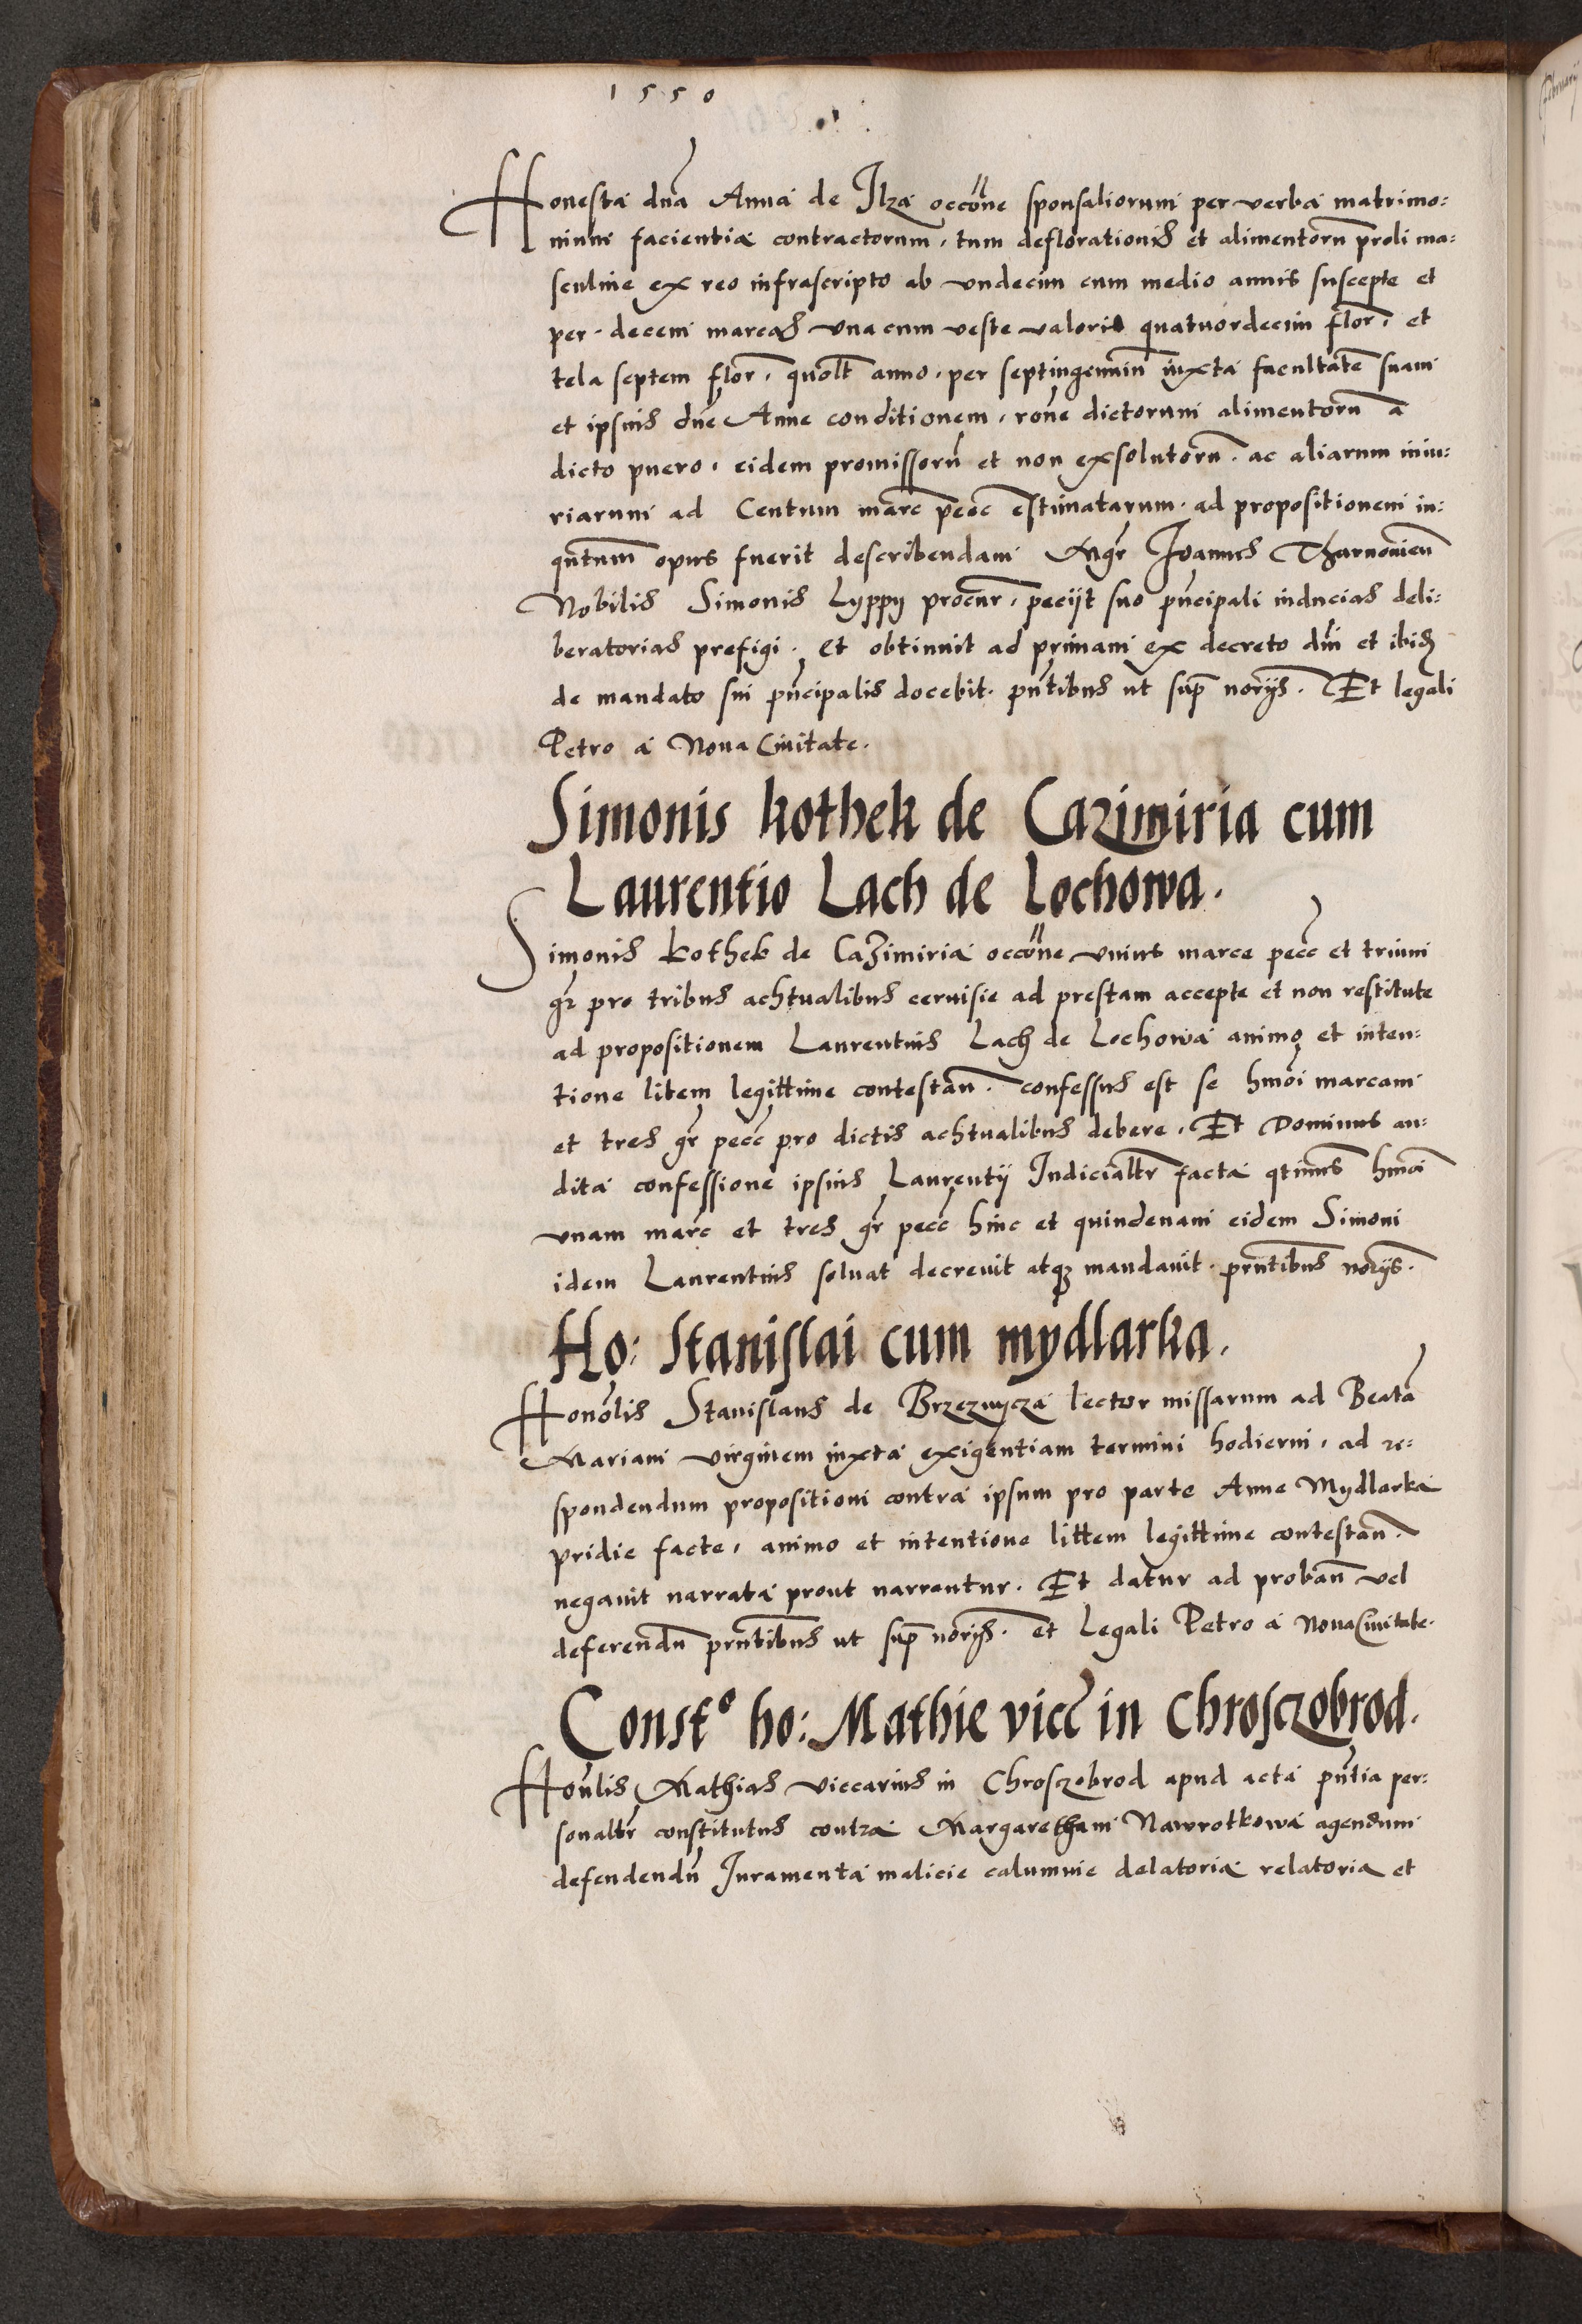 1550
Honesta dna Anna de Ilza occōne sponsaliorum per verba matrimo:
nium facientia contractorum, tum deflorationis et alimentorū proli ma:
sculine ex reo infrascripto ab vndecim cum medio annis suscepte et
per decem marcas vna cum veste valoris quatuordecim flor, et
tela septem flor, quolt anno, per septingennium iuxta facultatē suam
et ipsius dne Anne conditionem, rōne dictorum alimentorū a
dicto puero, eidem promissorū et non exsolutorū. ac aliarum iniu:
riarum ad Centum marc pecc estimatarum. ad propositionem in:
qntum opus fuerit describendam Mgr Joannes Tharnovien
Nobilis Simonis Lyppy procur, peciit suo pncipali inducias deli:
beratorias prefigi. Et obtinuit ad primam ex decreto dni et ibid
de mandato sui pncipalis docebit. pntibus ut sup norijs. Et legali
Petro a Noua Ciuitate.
Simonis kothek de Cazimiria cum
Laurentio Lach de Lochowa.
Simonis kothek de Cazimiria occōne vnius marce pecc et trium
gr pro tribus achtualibus ceruisie ad prestam accepte et non restitute
ad propositionem Laurentius Lach de Lochowa animo et inten:
tione litem legittime contestan. confessus est se hmōi marcam
et tres gr pecc pro dictis achtualibus debere. Et Dominus au:
dita confessione ipsius Laurentij Iudicialtr facta qtinus hmōi
vnam marc et tres gr pecc hinc et quindenam eidem Simoni
idem Laurentius soluat decreuit atq mandauit. prntibus norijs.
Ho: Stanislai cum mydlarka.
Honolis Stanislaus de Brzeznycza lector missarum ad Beatā
Mariam virginem iuxta exigentiam termini hodierni, ad re:
spondendum propositioni contra ipsum pro parte Anne Mydlarka
pridie facte, animo et intentione littem legittime contestan.
negauit narrata prout narrantur. Et datur ad proban vel
deferendū prntibus ut sup norijs. et Legali Petro a Noua Ciuitate.
Constº ho: Mathie vicc in Chrosczobrod.
Honlis Mathias viccarius in Chrosczobrod apud acta pntia per:
sonaltr constitutus contra Margaretham Nawrotkowa agendum
defendendū Iuramenta malicie calumnie delatoria relatoria et